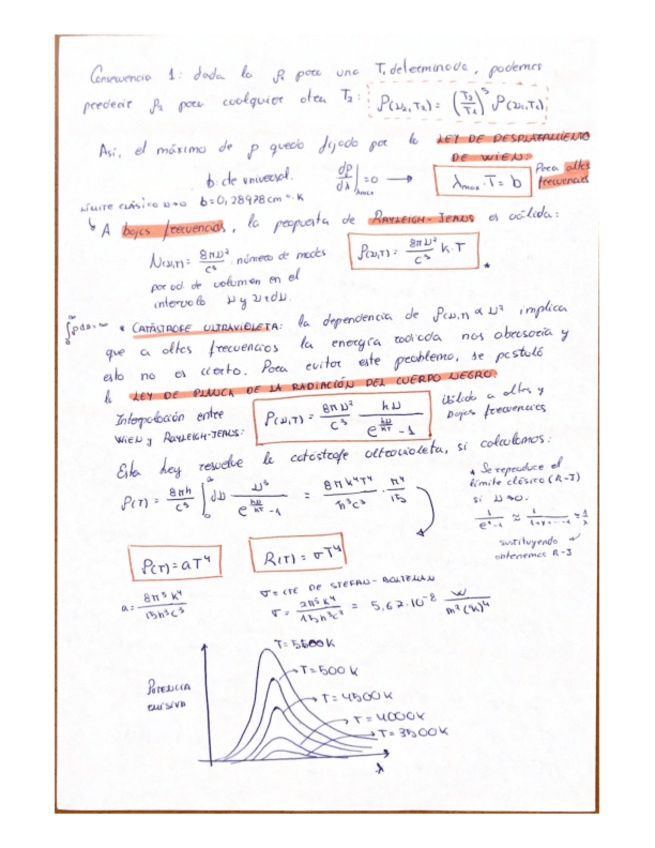 Consecuencia 1: dada la ρ₁ para una T₁ determinada, podemos
predecir ρ₂ para cualquier otra T₂: ρ(ν₂,T₂) = (T₂/T₁)³ ρ(ν₁,T₁)
Así, el máximo de ρ queda fijado por la LEY DE DESPLAZAMIENTO
DE WIEN:
b: cte universal. dρ/dλ|λmax = 0 → λmax · T = b Para altas frecuencias
Límite clásico ν→0 b = 0,28978 cm·K
↳ A bajas frecuencias, la propuesta de RAYLEIGH-JEANS es válida:
N(ν,T) = 8πν²/c³ número de modos ρ(ν,T) = 8πν²/c³ k·T *
por ud. de volumen en el
intervalo ν y ν+dν.
∫₀^∞ ρdν = ∞ * CATÁSTROFE ULTRAVIOLETA: la dependencia de ρ(ν,T) α ν² implica
que a altas frecuencias la energía radiada nos abrasaría y
esto no es cierto. Para evitar este problema, se postuló
la LEY DE PLANCK DE LA RADIACIÓN DEL CUERPO NEGRO:
Interpolación entre
WIEN y RAYLEIGH-JEANS: ρ(ν,T) = 8πν²/c³ hν/(e^(hν/kT) - 1) Válida a altas y
bajas frecuencias
Esta ley resuelve la catástrofe ultravioleta, si calculamos:
ρ(T) = 8πh/c³ ∫₀^∞ dν ν³/(e^(hν/kT) - 1) = 8πk⁴T⁴/h³c³ · π⁴/15
* Se reproduce el
límite clásico (R-J)
si ν→0.
1/(eˣ-1) ≈ 1/(1+x-...-1) ≈ 1/x
sustituyendo
obtenemos R-J
ρ(T) = aT⁴ R(T) = σT⁴
a = 8π⁵k⁴/15h³c³
σ = CTE DE STEFAN-BOLTZMAN
σ = 2π⁵k⁴/15h³c² = 5,67·10⁻⁸ W/m²(K)⁴
T = 5500K
T = 500 K
T = 4500K
T = 4000K
T = 3500K
POTENCIA
EMISIVA
λ